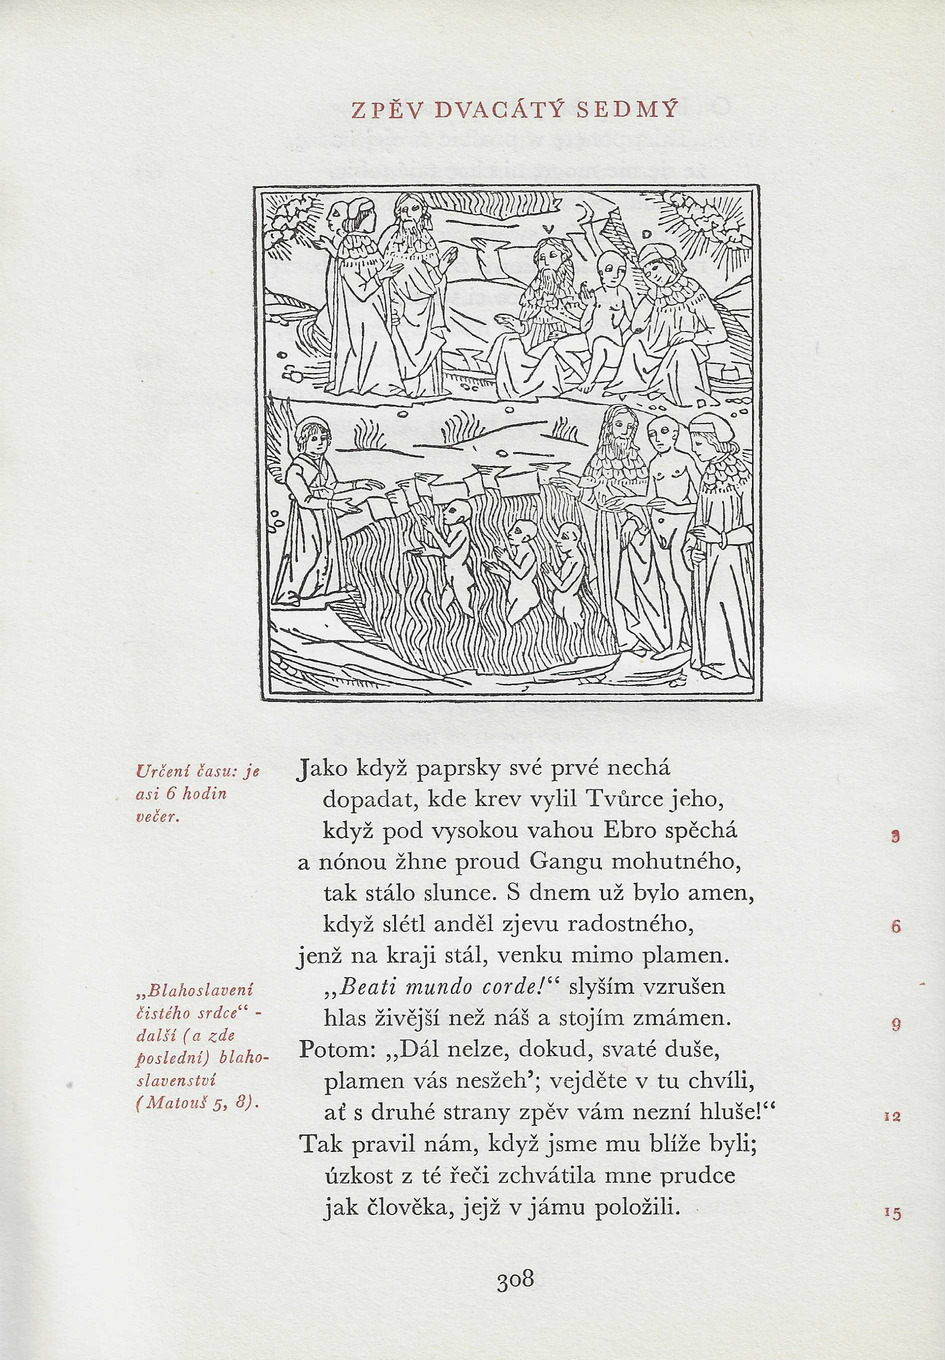 ZPĚV DVACÁTÝ SEDMÝ
V
D
D
Určení času: je
asi 6 hodin
večer.
Jako když paprsky své prvé nechá
dopadat, kde krev vylil Tvůrce jeho,
když pod vysokou vahou Ebro spěchá
3
a nónou žhne proud Gangu mohutného,
tak stálo slunce. S dnem už bylo amen,
když slétl anděl zjevu radostného,
6
jenž na kraji stál, venku mimo plamen.
„Blahoslavení
čistého srdce“ -
další (a zde
poslední) blaho-
slavenství
(Matouš 5, 8).
„Beati mundo corde!“ slyším vzrušen
hlas živější než náš a stojím zmámen.
9
Potom: „Dál nelze, dokud, svaté duše,
plamen vás nesžeh’; vejděte v tu chvíli,
ať s druhé strany zpěv vám nezní hluše!“
12
Tak pravil nám, když jsme mu blíže byli;
úzkost z té řeči zchvátila mne prudce
jak člověka, jejž v jámu položili.
15
308